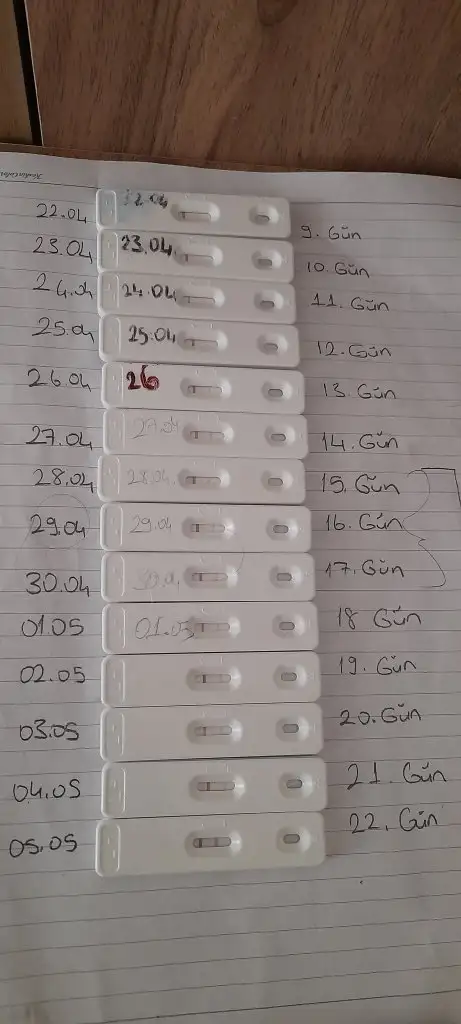 22.04 22.04 9. Gün
23.04 23.04. 10. Gün
24.04 24.04 11. Gün
25.04 25.04 12. Gün
26.04 26 13. Gün
27.04 27.04 14. Gün
28.04 28.04. 15. Gün
29.04 29.04 16. Gün
30.04 30.04 17. Gün
01.05 01.05 18 Gün
02.05 19. Gün
03.05 20. Gün
04.05 21. Gün
05.05 22. Gün